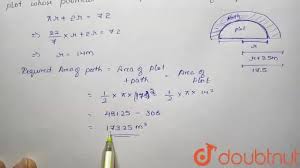 plot whose
πr + 2r = 72
22/7 × r + 2r = 72
r = 14m
path
14
r+3.5m
17.5
Required Area of path = Area of Plot + path - Area of Plot
= 1/2 × π × (17.5)² - 1/2 × π × 14²
= 481.25 - 308
= 173.25 m²
doubtnut